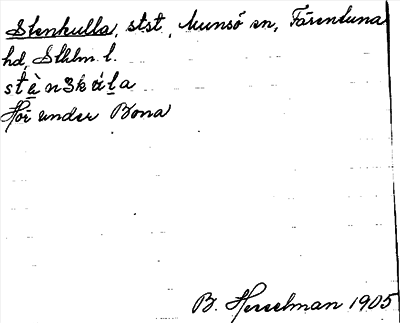 Stenkulla, stst, Munsö sn, Färentuna
hd, Sthlm. l.
Hör under Bona
B. Hesselman 1905